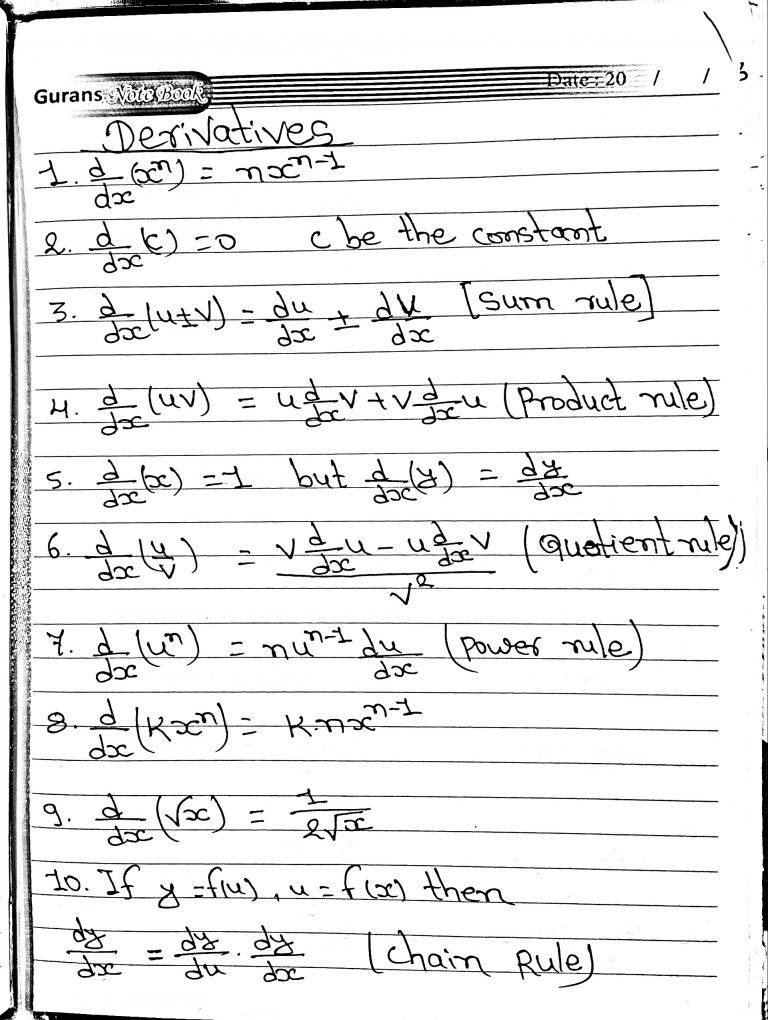 Gurans Note Book Date : 20 / / 3
Derivatives
1. d/dx (xⁿ) = nxⁿ⁻¹
2. d/dx (c) = 0 c be the constant
3. d/dx (u±v) = du/dx ± dv/dx [Sum rule]
4. d/dx (uv) = u d/dx v + v d/dx u (Product rule)
5. d/dx (x) = 1 but d/dx (y) = dy/dx
6. d/dx (u/v) = (v d/dx u - u d/dx v)/v² (Quotient rule)
7. d/dx (uⁿ) = nuⁿ⁻¹ du/dx (power rule)
8. d/dx (Kxⁿ) = K.nxⁿ⁻¹
9. d/dx (√x) = 1/2√x
10. If y = f(u), u = f(x) then
dy/dx = dy/du . dy/dx (Chain Rule)